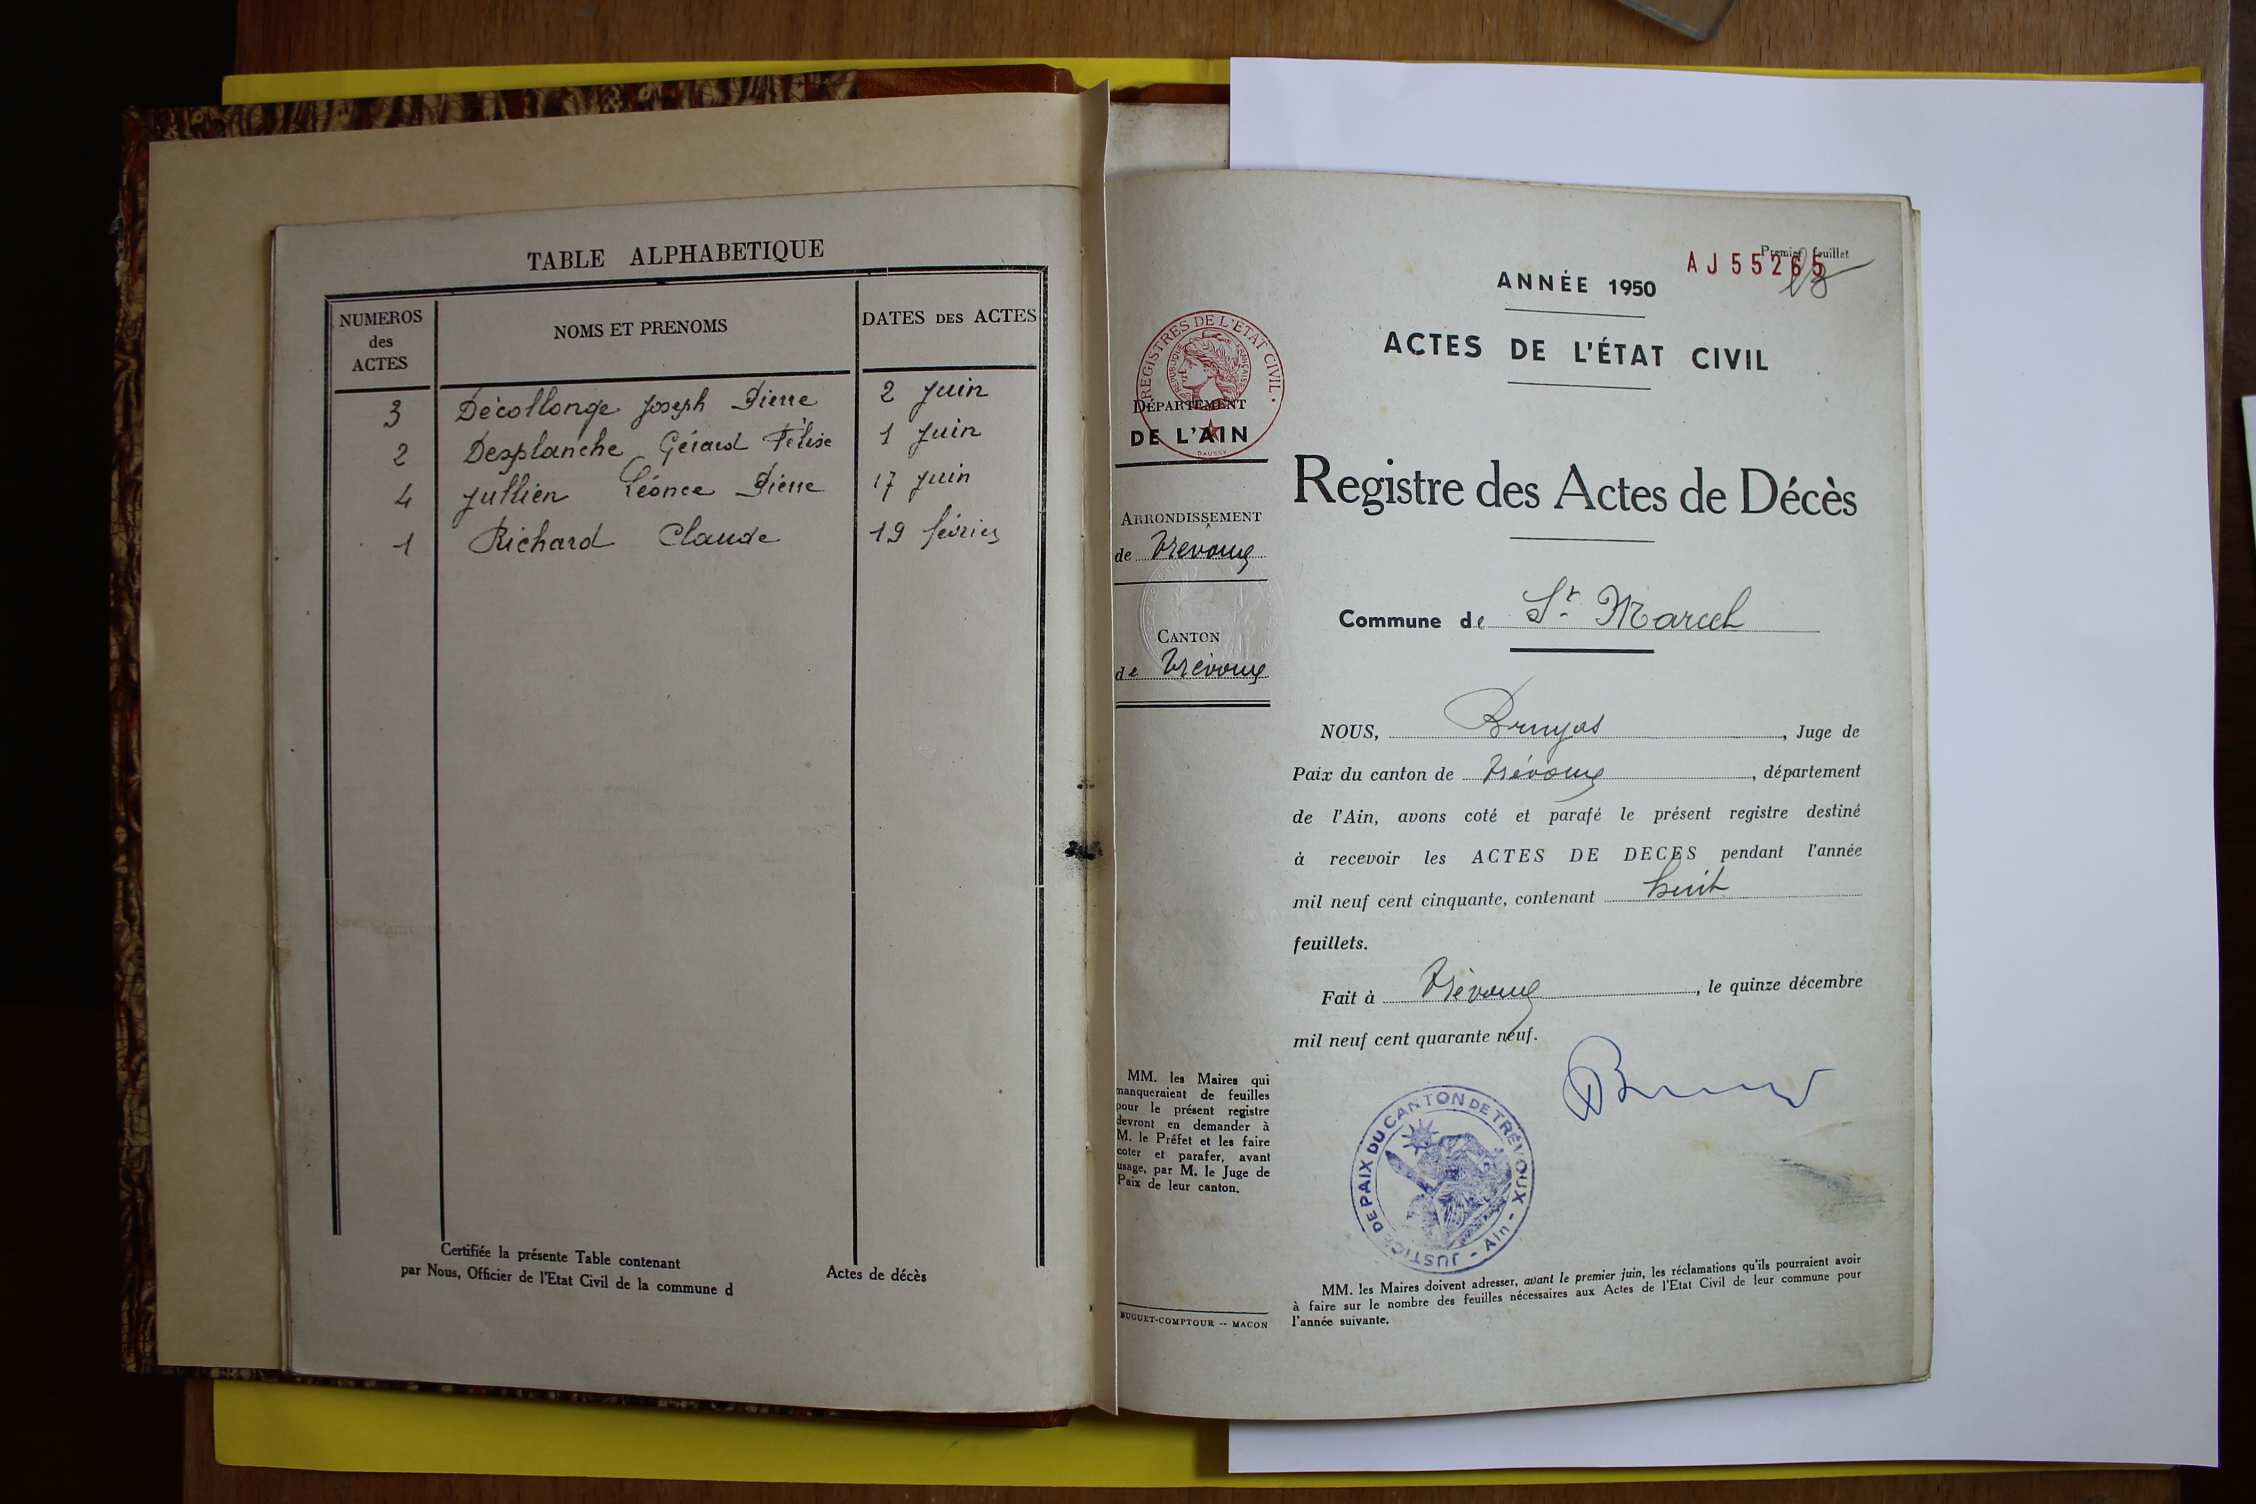 TABLE ALPHABETIQUE
NUMEROS des ACTES
NOMS ET PRENOMS
DATES DES ACTES
3 Décollonge Joseph Pierre 2 Juin
2 Desplanche Gérard 1 Juin
4 Jullien Léonce Pierre 17 Juin
1 Richard Claude 19 février
Certifiée la présente Table contenant Actes de décès
par Nous, Officier de l'Etat Civil de la commune d
Premier feuillet
AJ55265
ANNÉE 1950
ACTES DE L'ÉTAT CIVIL
REGISTRES DE L'ETAT CIVIL
REPUBLIQUE FRANÇAISE
DÉPARTEMENT
DE L'AIN
Registre des Actes de Décès
ARRONDISSEMENT
de Trévoux
Commune de St. Marcel
CANTON
de Trévoux
NOUS, Bruyas, Juge de
Paix du canton de Trévoux, département
de l'Ain, avons coté et parafé le présent registre destiné
à recevoir les ACTES DE DECES pendant l'année
mil neuf cent cinquante, contenant huit
feuillets.
Fait à Trévoux, le quinze décembre
mil neuf cent quarante neuf.
MM. les Maires qui
manqueraient de feuilles
pour le présent registre
devront en demander à
M. le Préfet et les faire
coter et parafer, avant
usage, par M. le Juge de
Paix de leur canton.
JUSTICE DE PAIX DU CANTON DE TRÉVOUX - Ain -
MM. les Maires doivent adresser, avant le premier juin, les réclamations qu'ils pourraient avoir
à faire sur le nombre des feuilles nécessaires aux Actes de l'Etat Civil de leur commune pour
l'année suivante.
BUGUET-COMPTOUR -- MACON